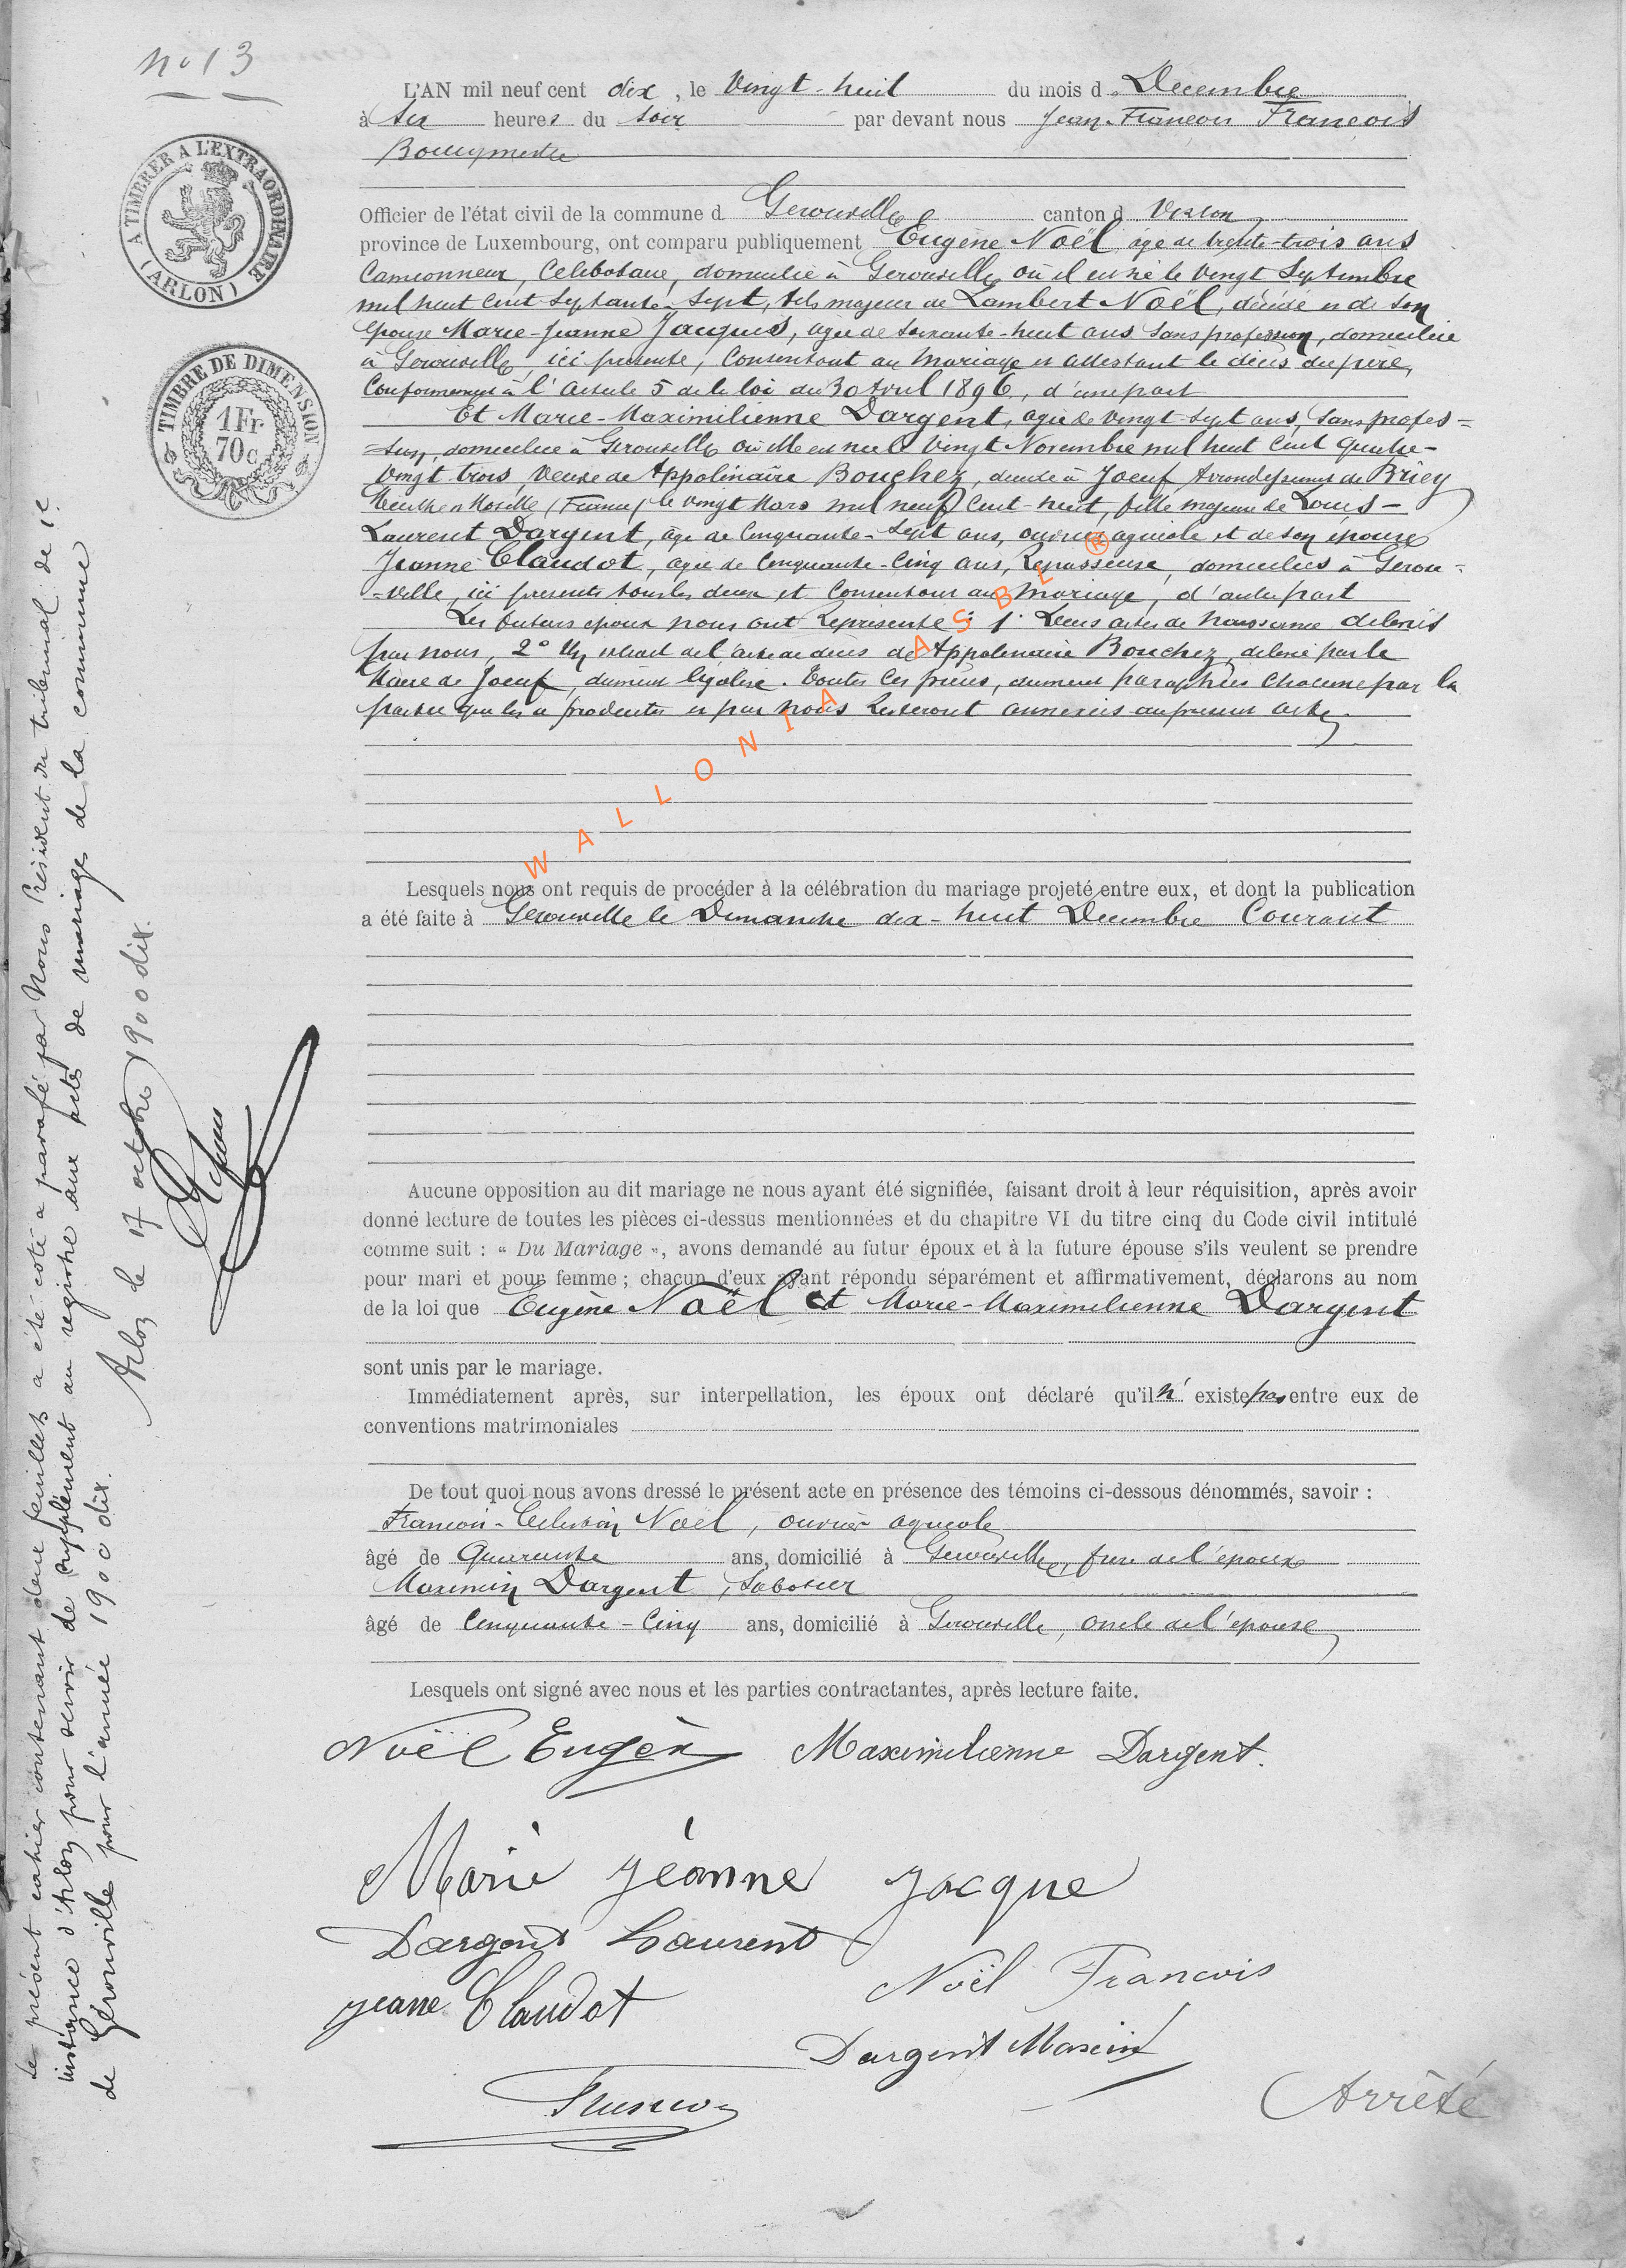 no 13
L'AN mil neuf cent dix, le Vingt-huit du mois d Decembre
à Six heures du Soir par devant nous Jean-François François
Bourgmestre
Officier de l'état civil de la commune d Gerouville canton d Virton
province de Luxembourg, ont comparu publiquement Eugène Noël âgé de trente-trois ans
Camionneur, Celibataire, domicilié à Gerouville où il est né le vingt Septembre
mil huit cent Septante-Sept, fils majeur de Lambert Noël, décédé et de son
épouse Marie-Jeanne Jacques, agée de soixante-huit ans sans profession, domiciliée
à Gerouville, ici présente, Consentant au mariage et attestant le décès du père,
Conformément à l'article 5 de la loi du 30 Avril 1896, d'une part
Et Marie-Maximilienne Dargent, agée de vingt-sept ans, Sans profes=
=sion, domiciliée à Gerouville où elle est née le Vingt Novembre mil huit Cent Quatre-
Vingt trois, Veuve de Appolinaire Bouchez, décédé à Joeuf Arrondissement de Briey
Meurthe et Moselle (France) le vingt Mars mil neuf Cent-huit, fille majeure de Louis-
Laurent Dargent, âgé de Cinquante-Sept ans, ouvrier agricole et de son épouse
Jeanne Claudot, agée de Cinquante-Cinq ans, Repasseuse, domiciliés à Gerou=
=ville, ici présents tous les deux et Consentant au mariage, d'autre part
Les futurs époux nous ont représenté: 1° Leurs actes de naissance délivrés
par nous, 2° Un extrait de l'acte de décès de Appolinaire Bouchez, délivré par le
Maire de Joeuf, dument légalisé. Toutes ces pièces, dument paraphées Chacune par la
partie qui les a produites et par nous resteront annexées au présent acte
WALLONIA ASBL ®
Lesquels nous ont requis de procéder à la célébration du mariage projeté entre eux, et dont la publication
a été faite à Gerouville le Dimanche dix-huit Decembre Courant
Aucune opposition au dit mariage ne nous ayant été signifiée, faisant droit à leur réquisition, après avoir
donné lecture de toutes les pièces ci-dessus mentionnées et du chapitre VI du titre cinq du Code civil intitulé
comme suit : « Du Mariage », avons demandé au futur époux et à la future épouse s'ils veulent se prendre
pour mari et pour femme ; chacun d'eux ayant répondu séparément et affirmativement, déclarons au nom
de la loi que Eugène Noël et Marie-Maximilienne Dargent
sont unis par le mariage.
Immédiatement après, sur interpellation, les époux ont déclaré qu'il n' existe pas entre eux de
conventions matrimoniales
De tout quoi nous avons dressé le présent acte en présence des témoins ci-dessous dénommés, savoir :
François- Noël, ouvrier agricole
âgé de Quarante ans, domicilié à Gerouville, frère de l'époux
Maximin Dargent, Sabotier
âgé de Cinquante-Cinq ans, domicilié à Gerouville, oncle de l'épouse
Lesquels ont signé avec nous et les parties contractantes, après lecture faite.
Noël Eugèn Maximilienne Dargent.
Marie jeanne jacque
Dargent Laurent
Noël Francois
jeane Claudot
Dargent Maximin
François
Arrêté
A TIMBRER A L'EXTRAORDINAIRE
(ARLON)
TIMBRE DE DIMENSION
1 Fr
70c
Le présent cahier contenant deux feuillets a été coté & parafé par Nous Président du tribunal de 1e
instance d'Arlon pour servir de supplément au registre aux actes de mariage de la commune
de Gérouville pour l'année 1900 dix.
Arlon le 17 octobre 1900 dix.